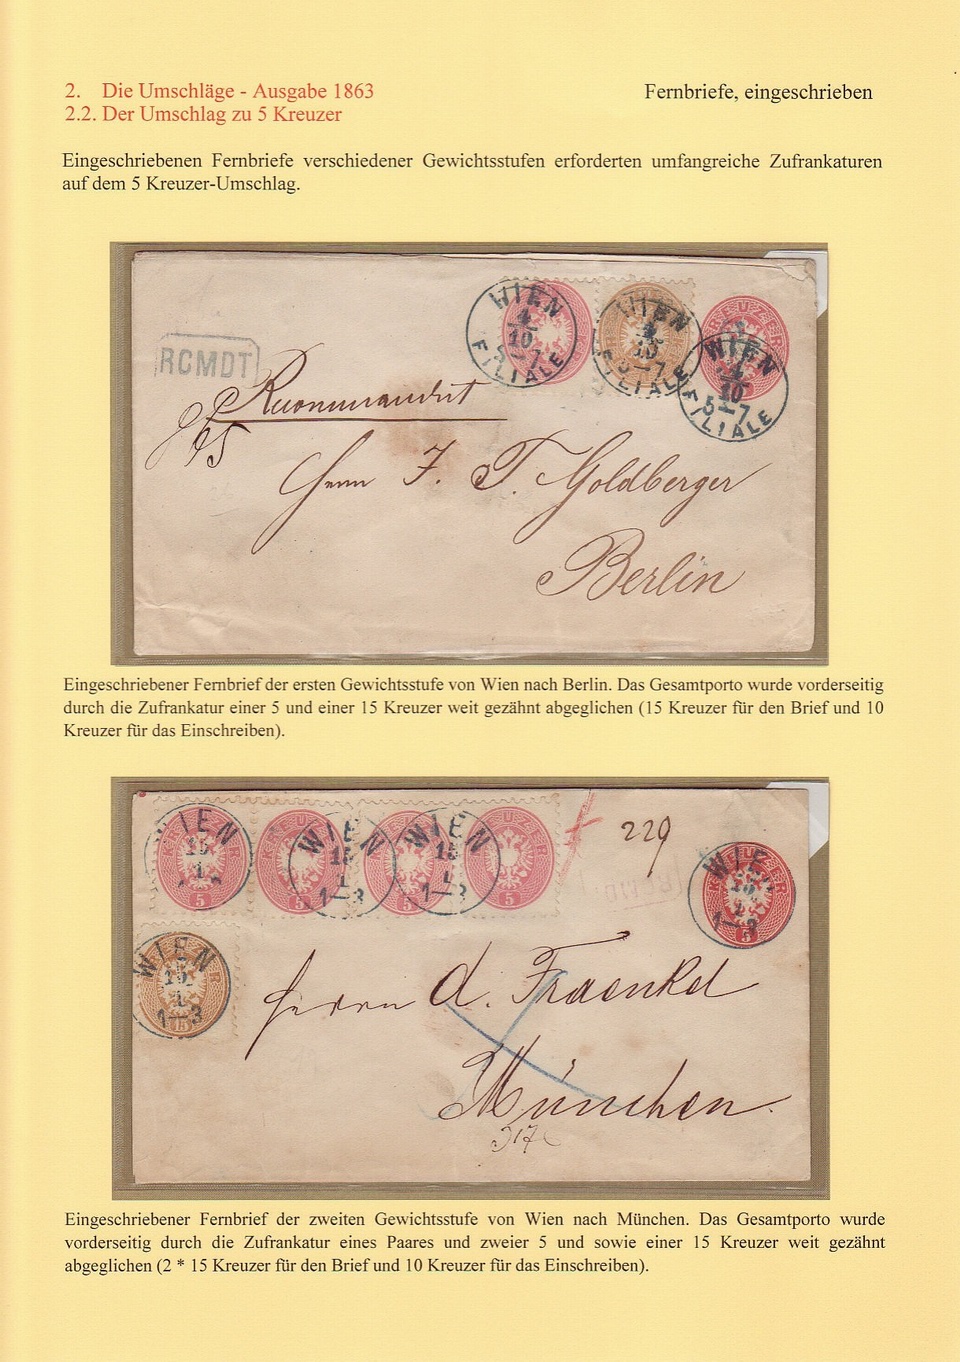 2. Die Umschläge - Ausgabe 1863
Fernbriefe, eingeschrieben
2.2. Der Umschlag zu 5 Kreuzer
Eingeschriebenen Fernbriefe verschiedener Gewichtsstufen erforderten umfangreiche Zufrankaturen
auf dem 5 Kreuzer-Umschlag.
WIEN
4
10
5-7
FILIALE
WIEN
4
10
5-7
FILIALE
WIEN
4
10
5-7
FILIALE
RCMDT
Recommandirt
Herrn J. T. Goldberger
Berlin
Eingeschriebener Fernbrief der ersten Gewichtsstufe von Wien nach Berlin. Das Gesamtporto wurde vorderseitig
durch die Zufrankatur einer 5 und einer 15 Kreuzer weit gezähnt abgeglichen (15 Kreuzer für den Brief und 10
Kreuzer für das Einschreiben).
WIEN
15
1
WIEN
15
1
1-3
WIEN
15
1
1-3
229
WIEN
15
1
1-3
5
5
5
5
5
WIEN
15
1
1-3
15
Herrn A. Fraenkel
München.
317
Eingeschriebener Fernbrief der zweiten Gewichtsstufe von Wien nach München. Das Gesamtporto wurde
vorderseitig durch die Zufrankatur eines Paares und zweier 5 und sowie einer 15 Kreuzer weit gezähnt
abgeglichen (2 * 15 Kreuzer für den Brief und 10 Kreuzer für das Einschreiben).